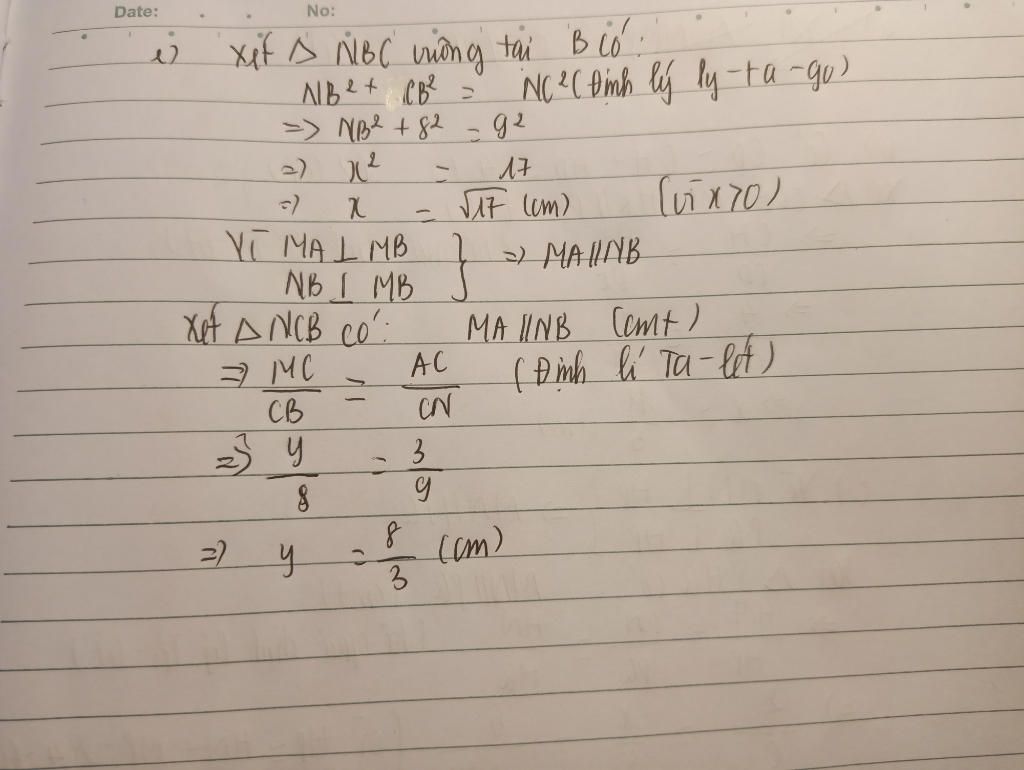 Date: No:
e) Xét Δ NBC vuông tại B có:
NB² + CB² = NC² (Định lý Py-ta-go)
=> NB² + 8² = 9²
=> x² = 17
=> x = √17 (cm) (vì x>0)
Vì MA ⊥ MB } => MA//NB
NB ⊥ MB
Xét Δ NCB có: MA//NB (cmt)
=> MC/CB = AC/CN (Định lí Ta-lét)
=> y/8 = 3/9
=> y = 8/3 (cm)